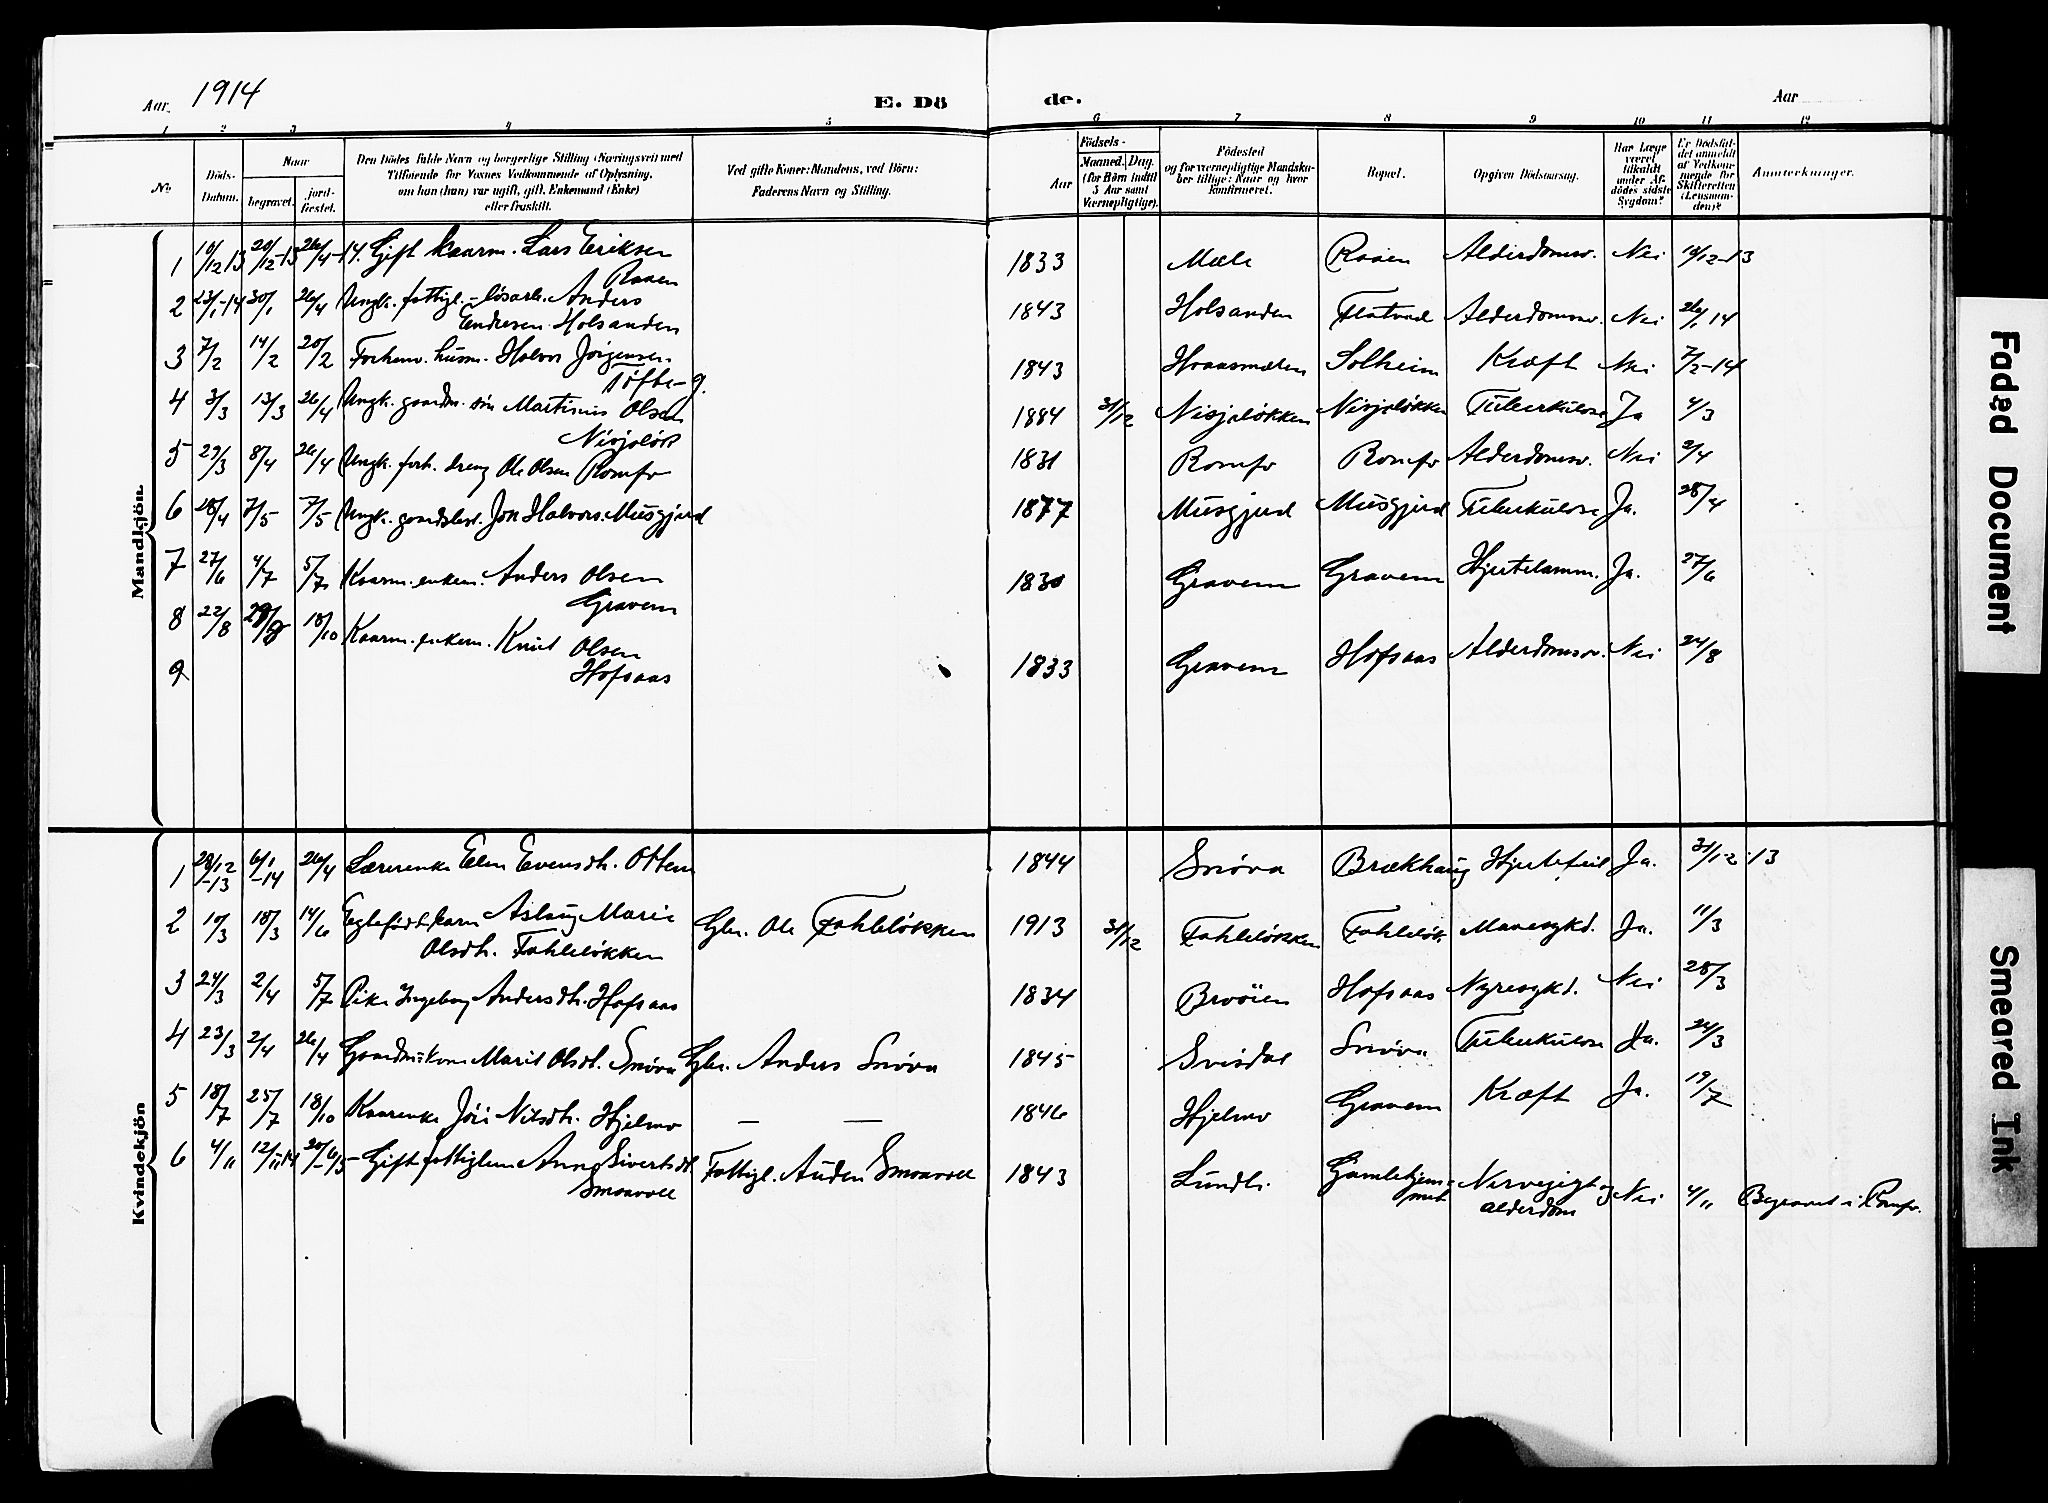 Aar. 1914
E. Döde.
Aar
1 2 3 4 5 6 7 8 9 10 11 12
No
Döds-Datum.
Naar
begravet.
jord-fæstet.
Den Dödes fulde Navn og borgerlige Stilling (Næringsvei) med
Tilföiende for Voxnes Vedkommende af Oplysning,
om han (hun) var ugift, gift, Enkemand (Enke)
eller fraskilt.
Ved gifte Koner: Mandens, ved Börn:
Faderens Navn og Stilling.
Aar
Födsels-
Maaned. Dag.
(for Börn indtil
5 Aar samt
Værnepligtige).
Födested
og for værnepligtige Mandsku-
ber tillige: Naar og hvor
konfirmeret.
Bopæl.
Opgiven Dödsaarsag.
Har Læge
været
tilkaldt
under Af-
dödes sidste
Sygdom?
Er Dödsfal-
det anmeldt
af Vedkom-
mende for
Skifteretten
(Lensman-
den)?
Anmerkninger.
Mandkjön.
1 10/12 13 20/12-13 26/4-14. Gift kaarm. Lars Eriksen Raaen 1833 Mæle Raaen Alderdomsv. Nei 10/12-13
2 23/1-14 30/1 26/4 Ungk. fattigl.-lösarb. Anders
Endresen Holsanden 1843 Holsanden Flatvad Alderdomsv. Nei 26/1 14
3 7/2 14/2 20/2 Forhenv. husm. Halvor Jörgensen
Töfte-g. 1843 Hraasmælen Solheim Kræft Nei 7/2-14
4 3/3 13/3 26/4 Ungk. gaardm. sön Martinus Olsen
Nisjalök 1884 31/12 Nisjaløkken Nisjaløkken Tuberkulose Ja 4/3
5 29/3 8/4 26/4 Ungk. forh. dreng Ole Olsen Romfo 1831 Romfo Romfo Alderdomsv. Nei 2/4
6 28/4 7/5 7/5 Ungk. gaardsbest. Jon Halvors. Musgjerd 1877 Musgjerd Musgjerd Tuberkulose Ja. 28/4
7 27/6 4/7 5/7 Kaarm. enkem. Anders Olsen
Gravem 1830 Gravem Gravem Hjertelamm. Ja. 27/6
8 22/8 18/10 Kaarm. enkem. Knut Olsen
Hofsaas 1833 Gravem Hofsaas Alderdomsv. Nei 24/8
9
Kvindekjön
1 28/12-13 6/1-14 26/4 Lærerenke Elen Evensdtr. Ottem 1844 Snöva Brækhaug Hjertefeil Ja. 31/12-13
2 10/3 18/3 14/6 Egtefödt barn Aslaug Marie
Olsdtr. Fahleløkken Gbr. Ole Fahleløkken 1913 31/12 Fahleløkken Fahleløk. Mavesykd. Ja. 11/3
3 24/3 2/4 5/7 Pike Ingeborg Andersdtr. Hofsaas 1834 Broöien Hofsaas Nyresykd. Nei 28/3
4 23/3 2/4 26/4 Gaardm.kone Marit Olsdt. Snøva Gbr. Anders Snøva 1845 Svisdal Snøva Tuberkulose Ja. 24/3
5 18/7 25/7 18/10 Kaarenke Jöri Nilsdtr. Hjelmo — — 1846 Hjelmo Gravem Kræft Ja. 19/7
6 4/11 12/11-14 20/6-15 Gift fattiglem Anne Sivertsdt.
Smoavoll Fattigl. Auden Smoavoll 1843 Lundli Gamlehjem-
met Nervegigt og
alderdom Nei 4/11 Begravet i Romfo.
Faded Document
Smeared Ink